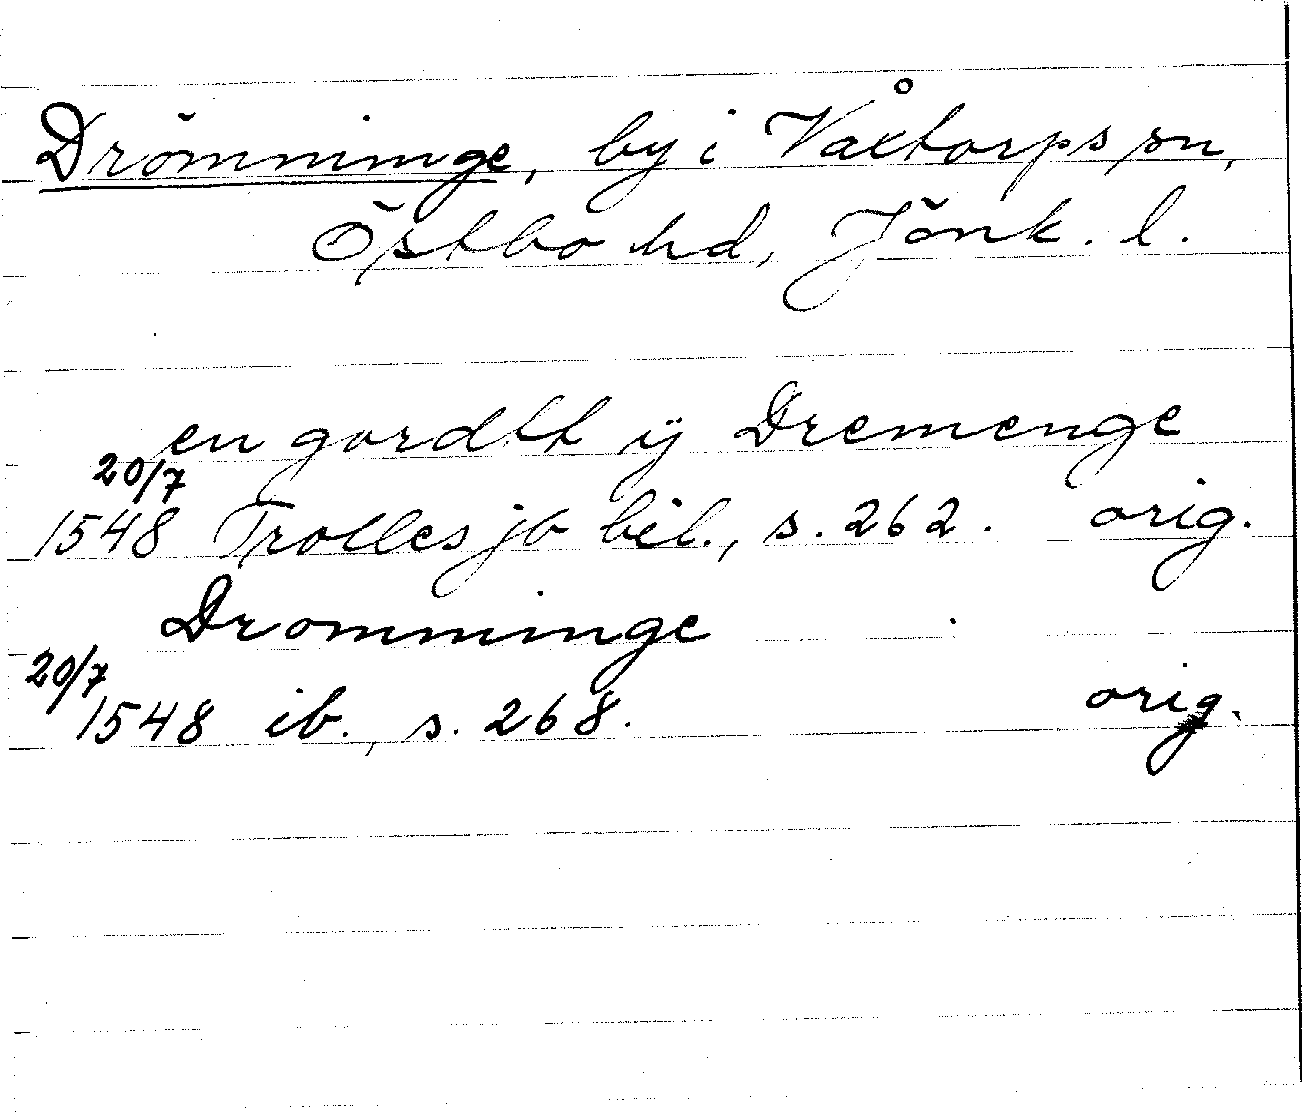 Drömminge, by i Våxtorps sn,
Östbo hd, Jönk. l.
en gardtt ij Dremenge
20/7
1548 Trolles jb bil., s. 262. orig.
Dromminge
20/7
1548 ib., s. 268. orig.